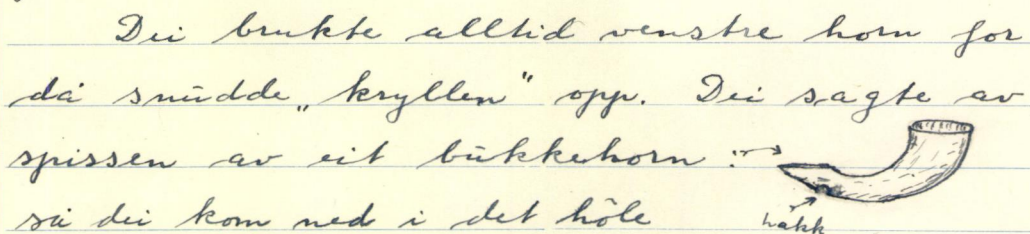 Dei brukte alltid venstre horn for
då snudde „kryllen" opp. Dei sagte av
spissen av eit bukkehorn :
så dei kom ned i det hòle
hakk